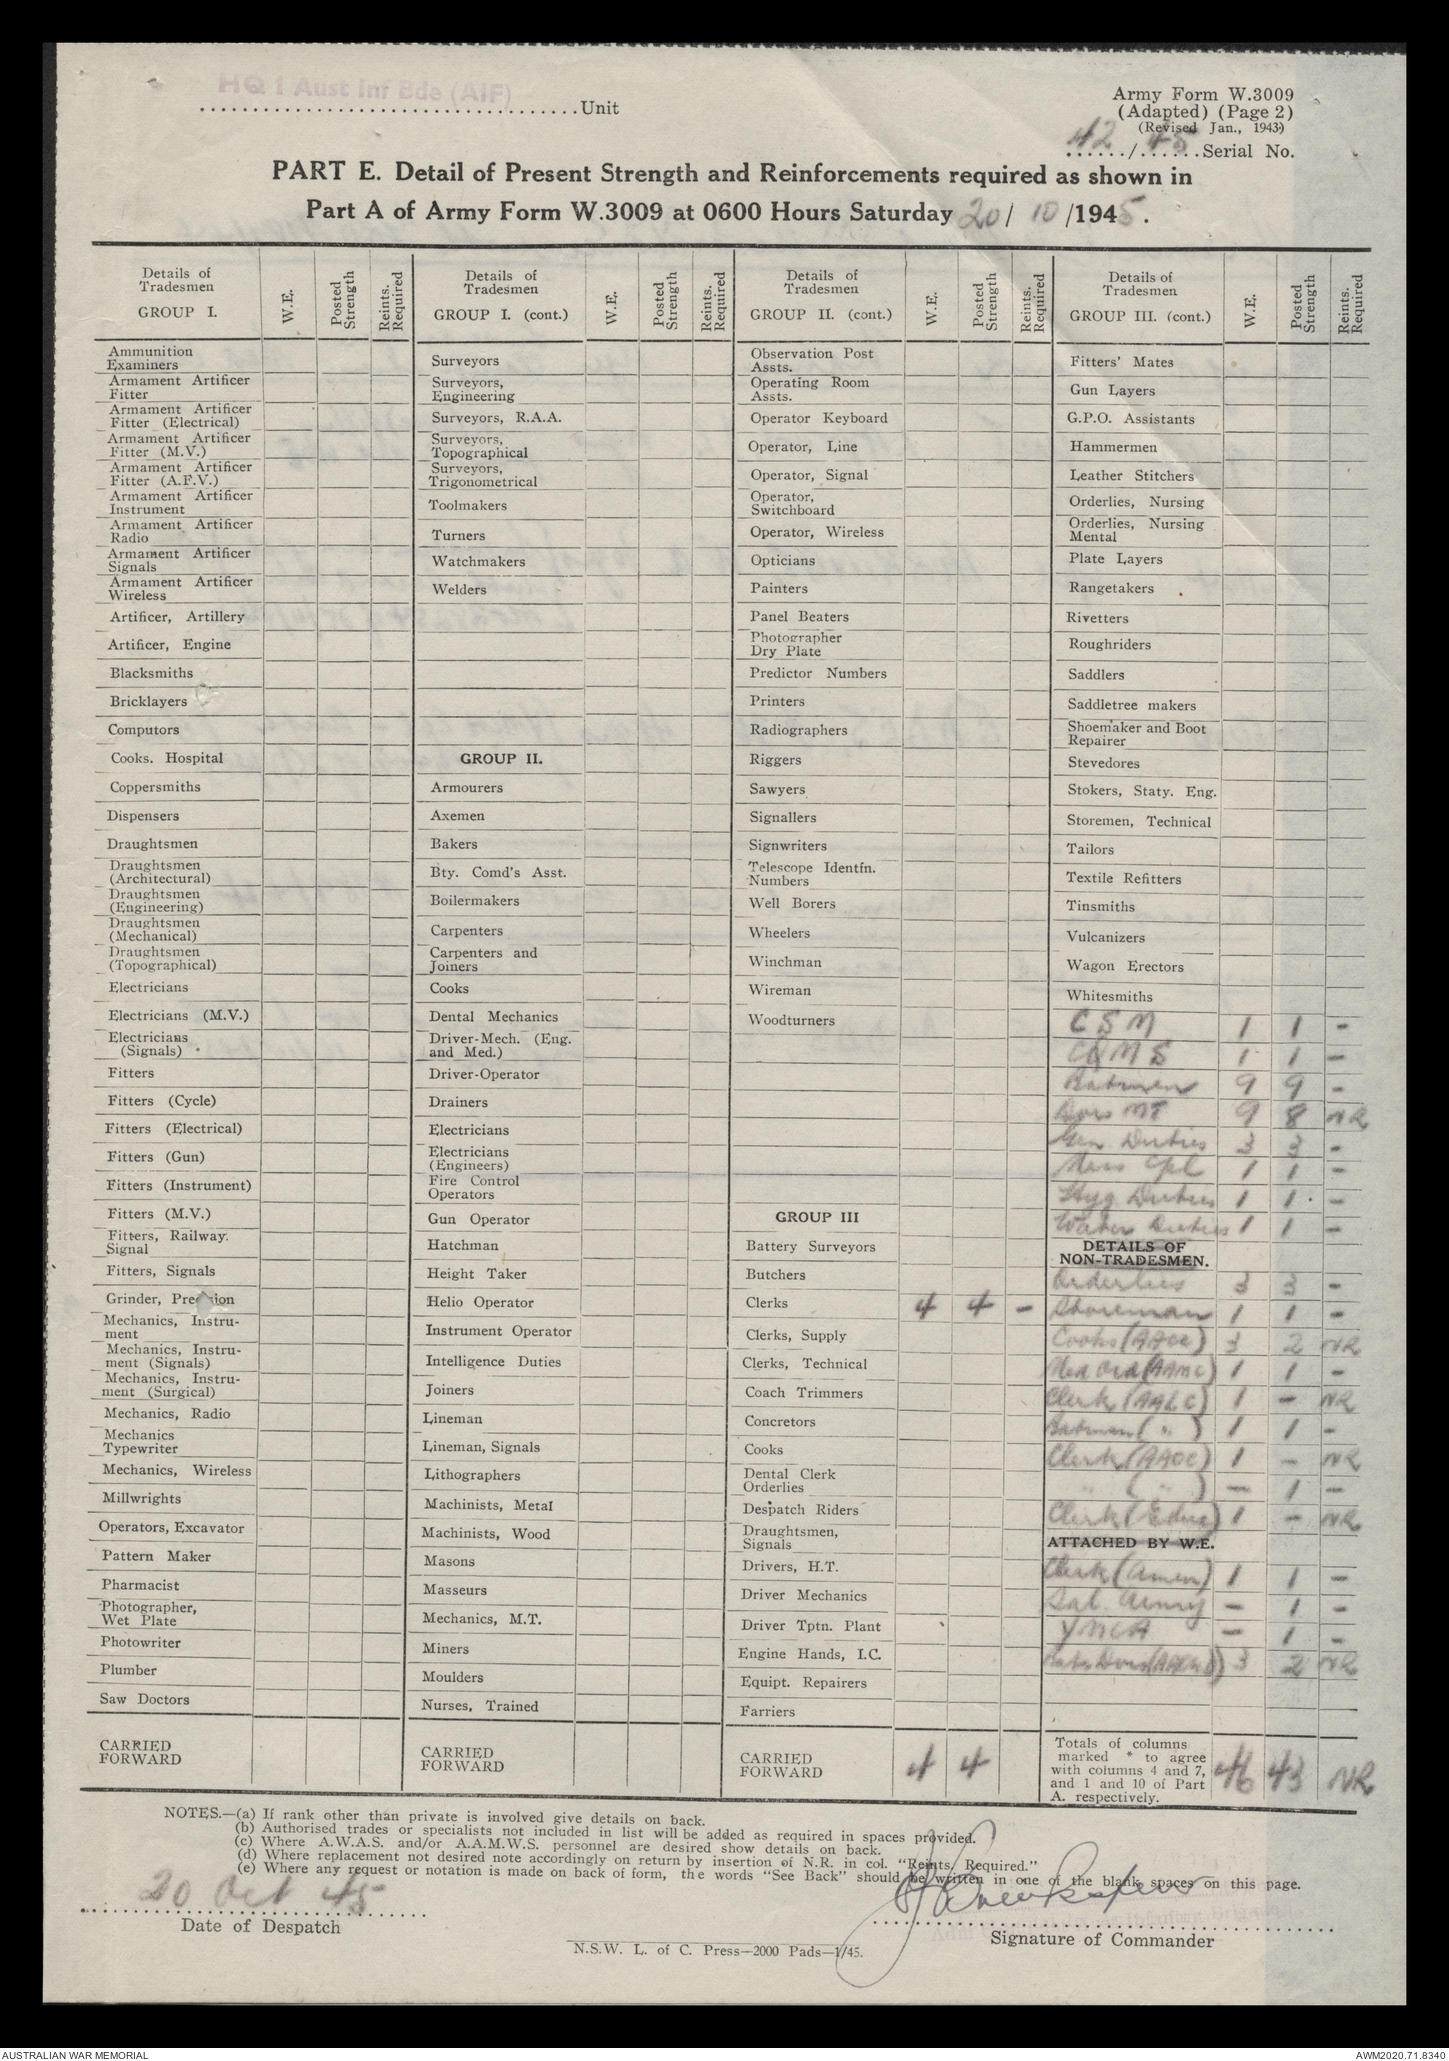 HQ 1 Aust Inf Bde (AIF)
Unit
Army Form W.3009
(Adapted) (Page 2)
(Revised Jan., 1943)
42 / 45 Serial No.
PART E. Detail of Present Strength and Reinforcements required as shown in
Part A of Army Form W.3009 at 0600 Hours Saturday 20 / 10 /1945.
Details of Tradesmen GROUP I.
W.E.
Posted Strength
Reints. Required
Ammunition Examiners
Armament Artificer Fitter
Armament Artificer Fitter (Electrical)
Armament Artificer Fitter (M.V.)
Armament Artificer Fitter (A.F.V.)
Armament Artificer Instrument
Armament Artificer Radio
Armament Artificer Signals
Armament Artificer Wireless
Artificer, Artillery
Artificer, Engine
Blacksmiths
Bricklayers
Computors
Cooks. Hospital
Coppersmiths
Dispensers
Draughtsmen
Draughtsmen (Architectural)
Draughtsmen (Engineering)
Draughtsmen (Mechanical)
Draughtsmen (Topographical)
Electricians
Electricians (M.V.)
Electricians (Signals)
Fitters
Fitters (Cycle)
Fitters (Electrical)
Fitters (Gun)
Fitters (Instrument)
Fitters (M.V.)
Fitters, Railway. Signal
Fitters, Signals
Grinder, Precision
Mechanics, Instru-
ment
Mechanics, Instru-
ment (Signals)
Mechanics, Instru-
ment (Surgical)
Mechanics, Radio
Mechanics Typewriter
Mechanics, Wireless
Millwrights
Operators, Excavator
Pattern Maker
Pharmacist
Photographer, Wet Plate
Photowriter
Plumber
Saw Doctors
CARRIED FORWARD
Details of Tradesmen GROUP I. (cont.)
W.E.
Posted Strength
Reints. Required
Surveyors
Surveyors, Engineering
Surveyors, R.A.A.
Surveyors, Topographical
Surveyors, Trigonometrical
Toolmakers
Turners
Watchmakers
Welders
GROUP II.
Armourers
Axemen
Bakers
Bty. Comd's Asst.
Boilermakers
Carpenters
Carpenters and Joiners
Cooks
Dental Mechanics
Driver-Mech. (Eng. and Med.)
Driver-Operator
Drainers
Electricians
Electricians (Engineers)
Fire Control Operators
Gun Operator
Hatchman
Height Taker
Helio Operator
Instrument Operator
Intelligence Duties
Joiners
Lineman
Lineman, Signals
Lithographers
Machinists, Metal
Machinists, Wood
Masons
Masseurs
Mechanics, M.T.
Miners
Moulders
Nurses, Trained
CARRIED FORWARD
Details of Tradesmen GROUP II. (cont.)
W.E.
Posted Strength
Reints. Required
Observation Post Assts.
Operating Room Assts.
Operator Keyboard
Operator, Line
Operator, Signal
Operator, Switchboard
Operator, Wireless
Opticians
Painters
Panel Beaters
Photographer Dry Plate
Predictor Numbers
Printers
Radiographers
Riggers
Sawyers
Signallers
Signwriters
Telescope Identfn. Numbers
Well Borers
Wheelers
Winchman
Wireman
Woodturners
GROUP III
Battery Surveyors
Butchers
Clerks 4 4 -
Clerks, Supply
Clerks, Technical
Coach Trimmers
Concretors
Cooks
Dental Clerk Orderlies
Despatch Riders
Draughtsmen, Signals
Drivers, H.T.
Driver Mechanics
Driver Tptn. Plant
Engine Hands, I.C.
Equipt. Repairers
Farriers
CARRIED FORWARD 4 4
Details of Tradesmen GROUP III. (cont.)
W.E.
Posted Strength
Reints. Required
Fitters' Mates
Gun Layers
G.P.O. Assistants
Hammermen
Leather Stitchers
Orderlies, Nursing
Orderlies, Nursing Mental
Plate Layers
Rangetakers
Rivetters
Roughriders
Saddlers
Saddletree makers
Shoemaker and Boot Repairer
Stevedores
Stokers, Staty. Eng.
Storemen, Technical
Tailors
Textile Refitters
Tinsmiths
Vulcanizers
Wagon Erectors
Whitesmiths
CSM 1 1 -
CQMS 1 1 -
Batmen 9 9 -
Dvrs MT 9 8 NR
Gen Duties 3 3 -
Mess Cpl 1 1 -
Hyg Duties 1 1 -
Water Duties 1 1 -
DETAILS OF NON-TRADESMEN.
Orderlies 3 3 -
Storeman 1 1 -
Cooks (AACC) 3 2 NR
Med Ord (AAMC) 1 1 -
Clerk (AALC) 1 - NR
Batman ( " ) 1 1 -
Clerk (AAOC) 1 - NR
" ( " ) - 1 -
Clerk (Educ) 1 - NR
ATTACHED BY W.E.
Clerk (Amen) 1 1 -
Sal. Army - 1 -
YMCA - 1 -
3 2 NR
Totals of columns marked * to agree with columns 4 and 7, and 1 and 10 of Part A. respectively. 46 43 NR
NOTES.—(a) If rank other than private is involved give details on back.
(b) Authorised trades or specialists not included in list will be added as required in spaces provided.
(c) Where A.W.A.S. and/or A.A.M.W.S. personnel are desired show details on back.
(d) Where replacement not desired note accordingly on return by insertion of N.R. in col. "Reints. Required."
(e) Where any request or notation is made on back of form, the words "See Back" should be written in one of the blank spaces on this page.
20 Oct 45
Date of Despatch
Signature of Commander
N.S.W. L. of C. Press—2000 Pads—1/45.
AUSTRALIAN WAR MEMORIAL
AWM2020.71.8340